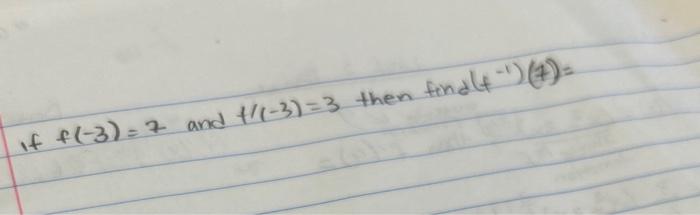 if f(-3) = 7 and f'(-3) = 3 then find (f⁻¹)(7) =